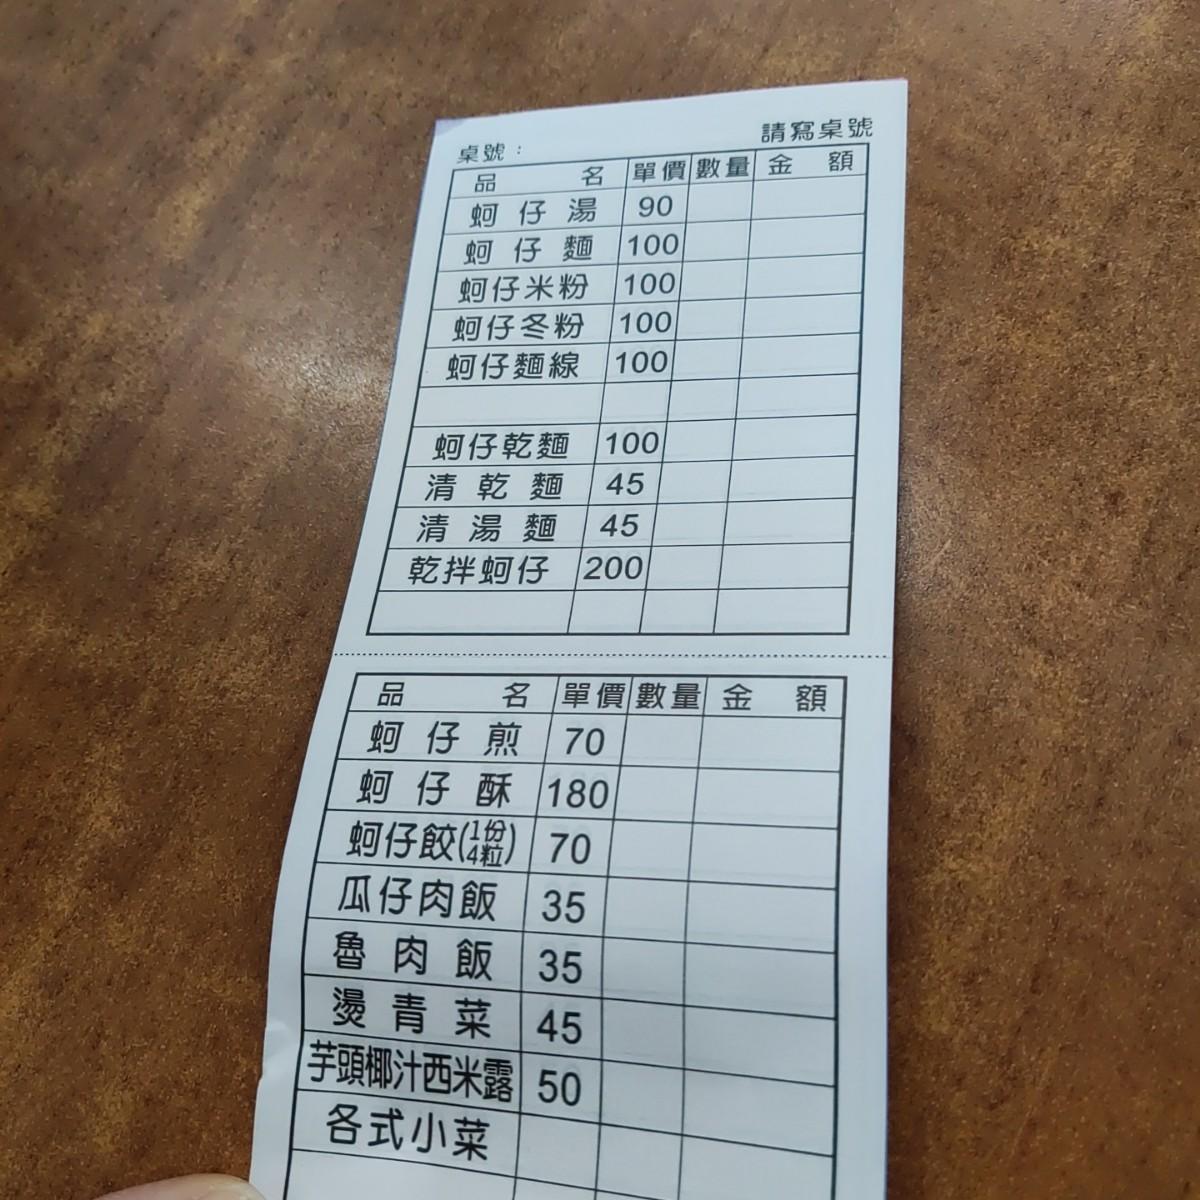 請寫桌號
桌號：
品名 單價 數量 金額
蚵仔湯 90
蚵仔麵 100
蚵仔米粉 100
蚵仔冬粉 100
蚵仔麵線 100
蚵仔乾麵 100
清乾麵 45
清湯麵 45
乾拌蚵仔 200
品名 單價 數量 金額
蚵仔煎 70
蚵仔酥 180
蚵仔餃(1份4粒) 70
瓜仔肉飯 35
魯肉飯 35
燙青菜 45
芋頭椰汁西米露 50
各式小菜